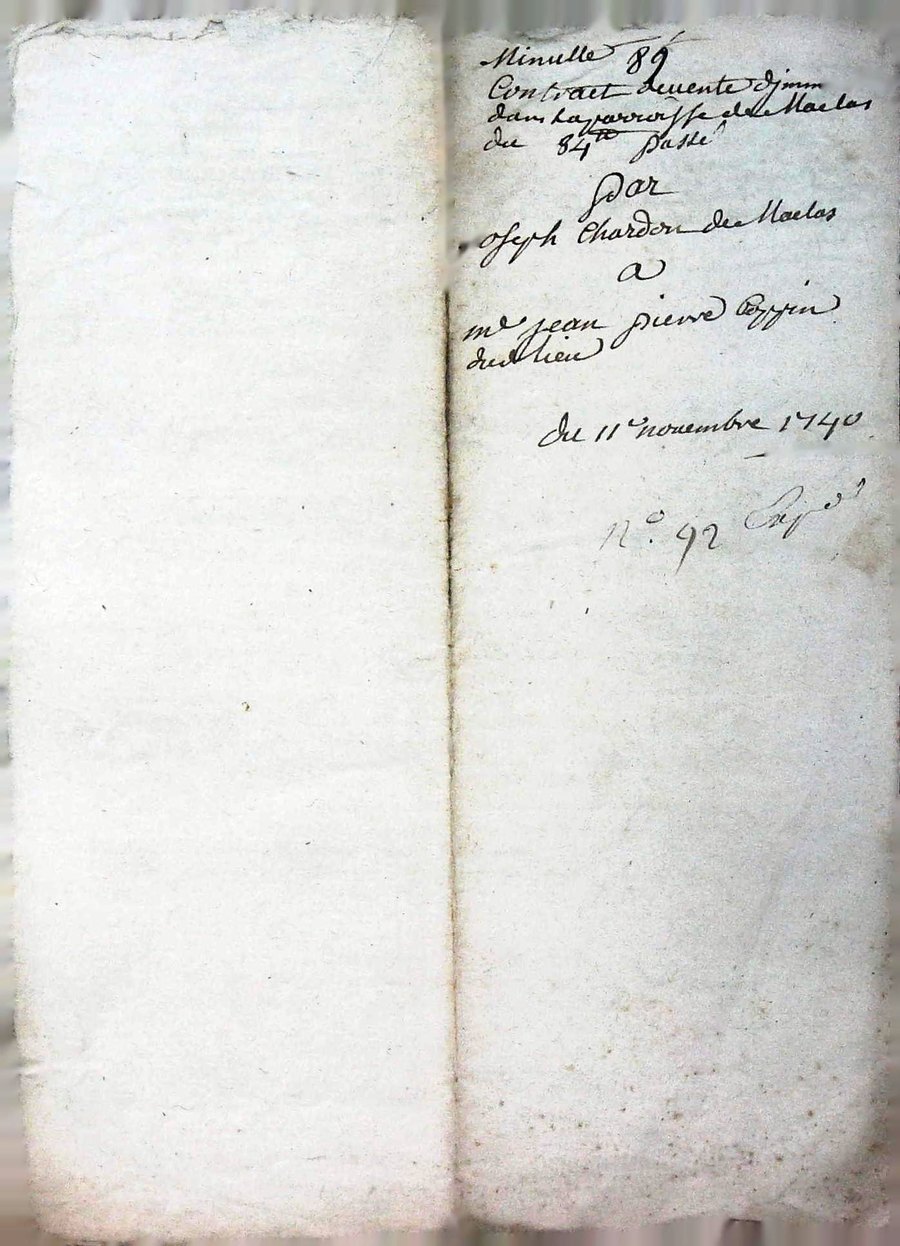 Minutte 89
Contract de vente d'jmm
dans la parroisse de Maclas
du 84tt passé
par
oseph Chardon de Maclas
a
me jean pierre Coppin
dud lieu
du 11e novembre 1740
N.o 92